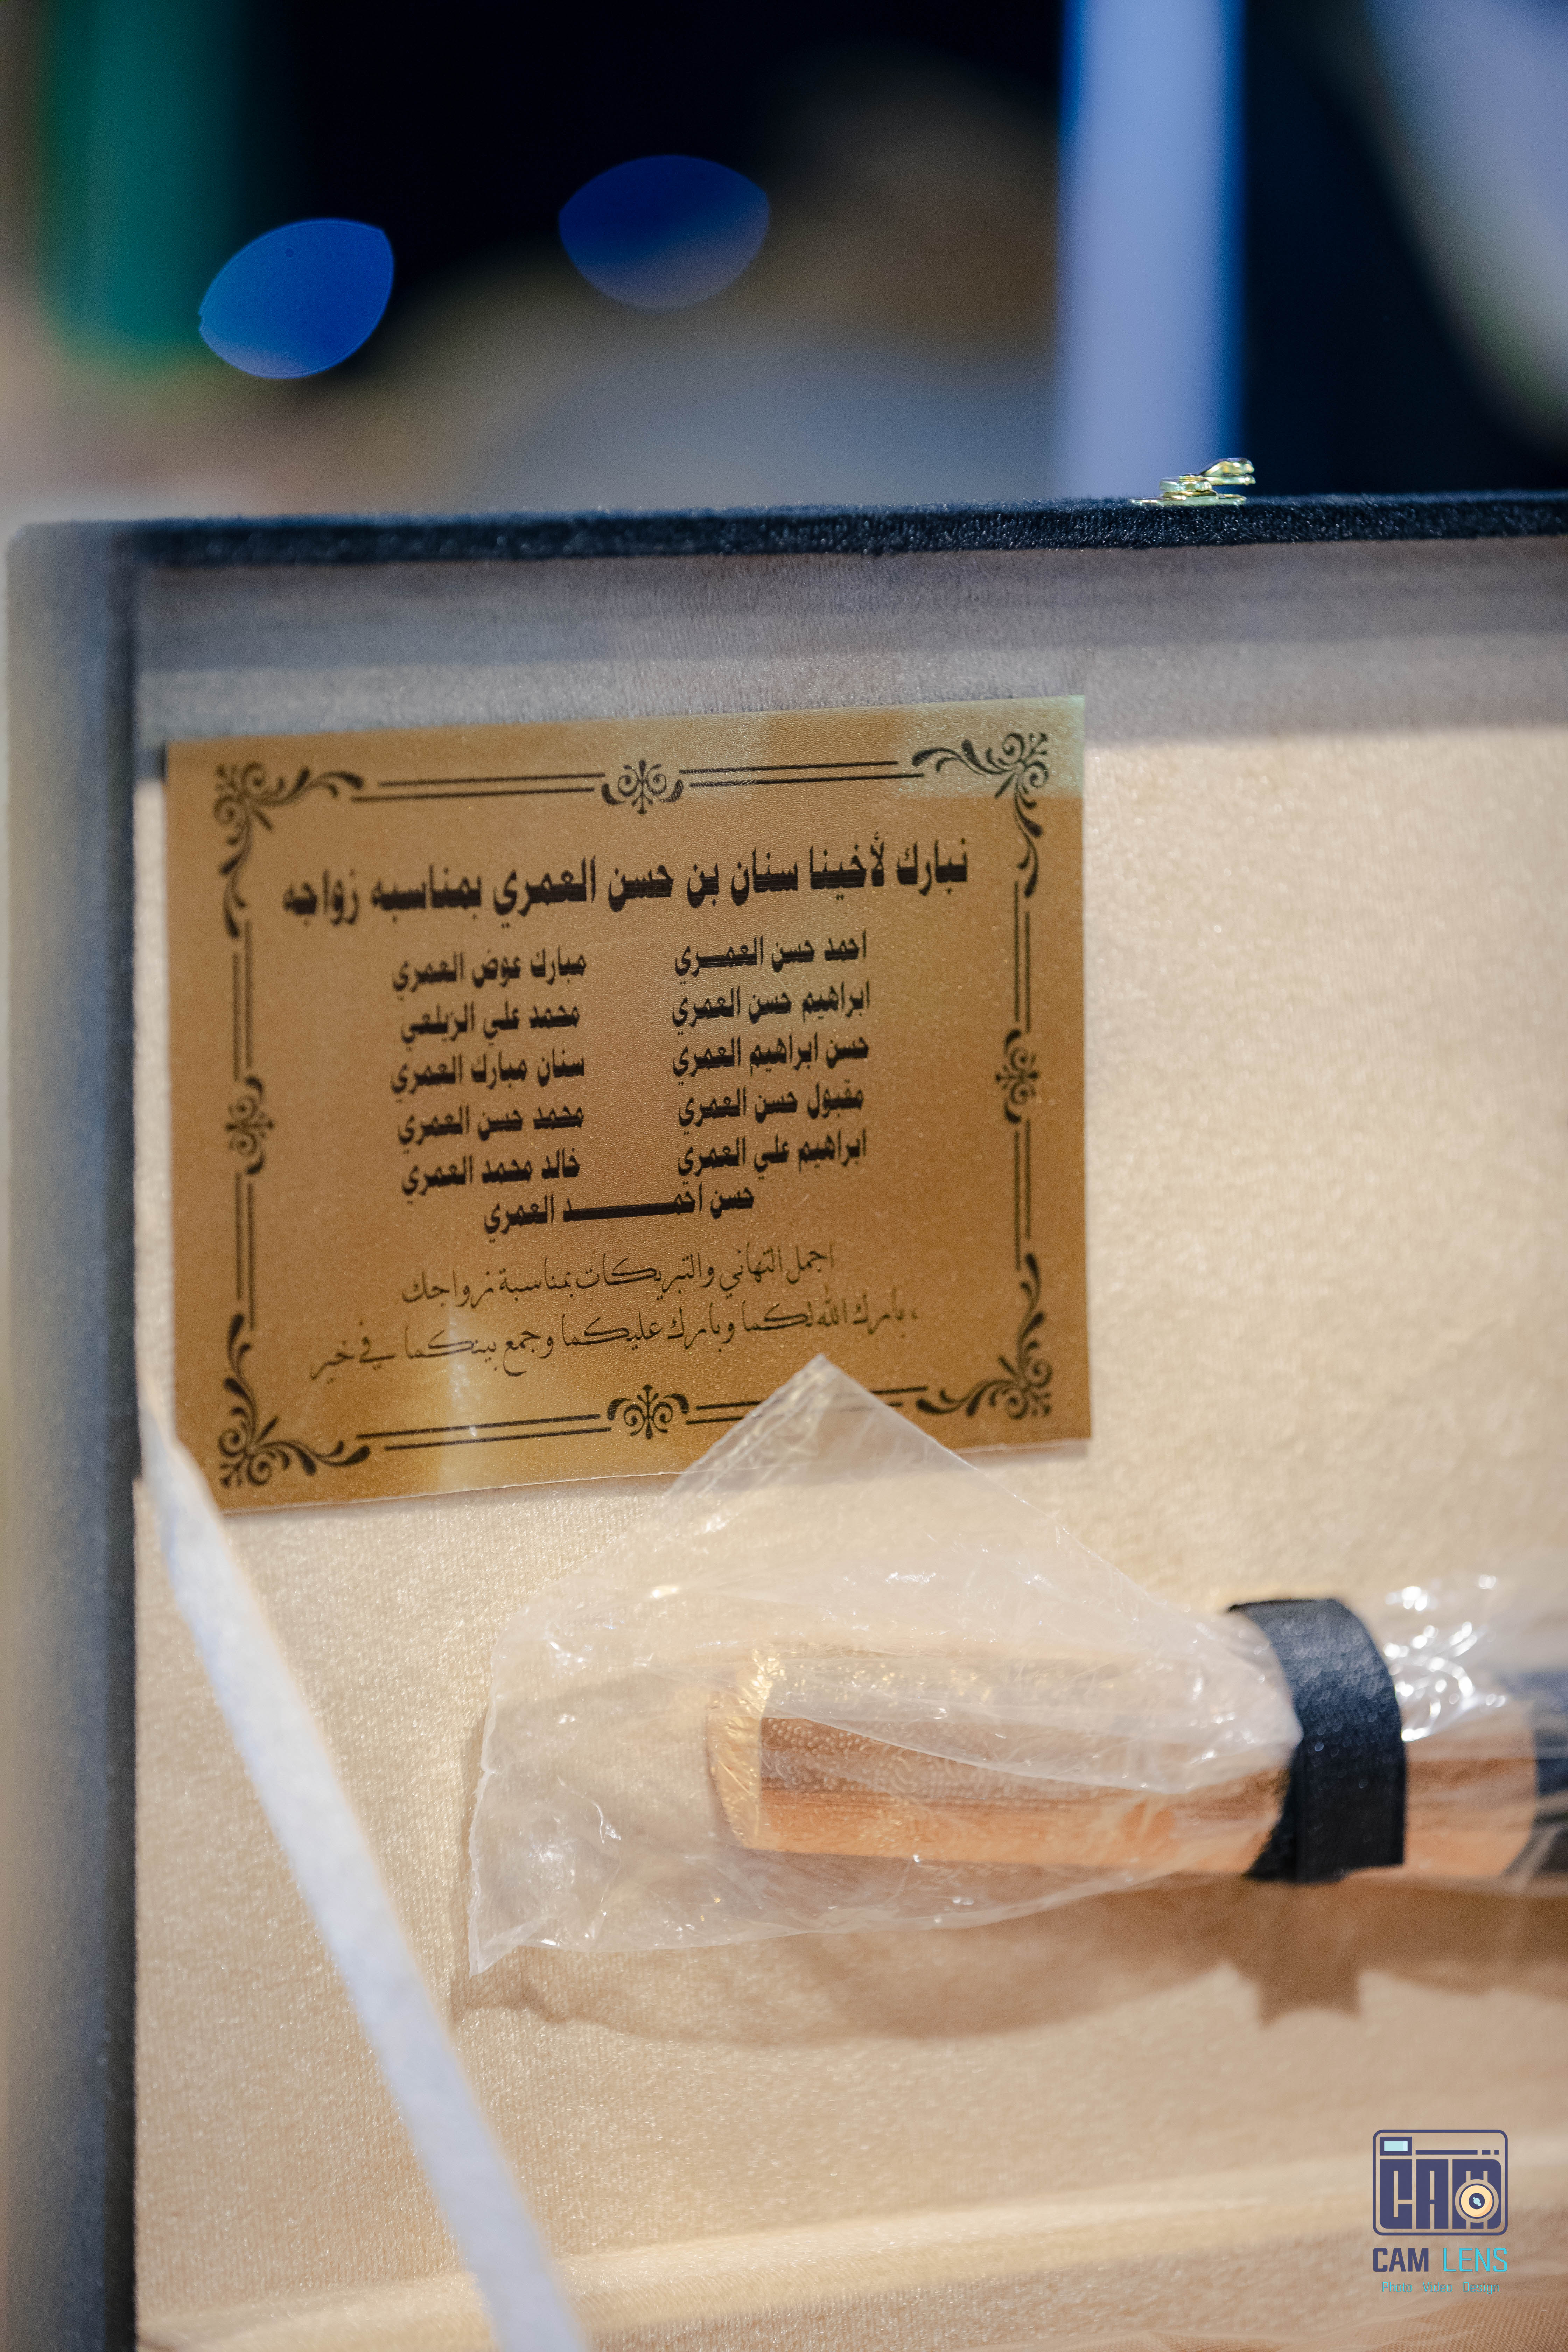 نبارك لأخينا سنان بن حسن العمري بمناسبه زواجه
احمد حسن العمـــري مبارك عوض العمري
ابراهيم حسن العمري محمد علي الزيلعي
حسن ابراهيم العمري سنان مبارك العمري
مقبول حسن العمري محمد حسن العمري
ابراهيم علي العمري خالد محمد العمري
حسن احمـــــــــــد العمري
اجمل التهاني والتبريكات بمناسبة زواجك
، بارك الله لكما وبارك عليكما وجمع بينكما في خير
CAM
CAM LENS
Photo . Video . Design